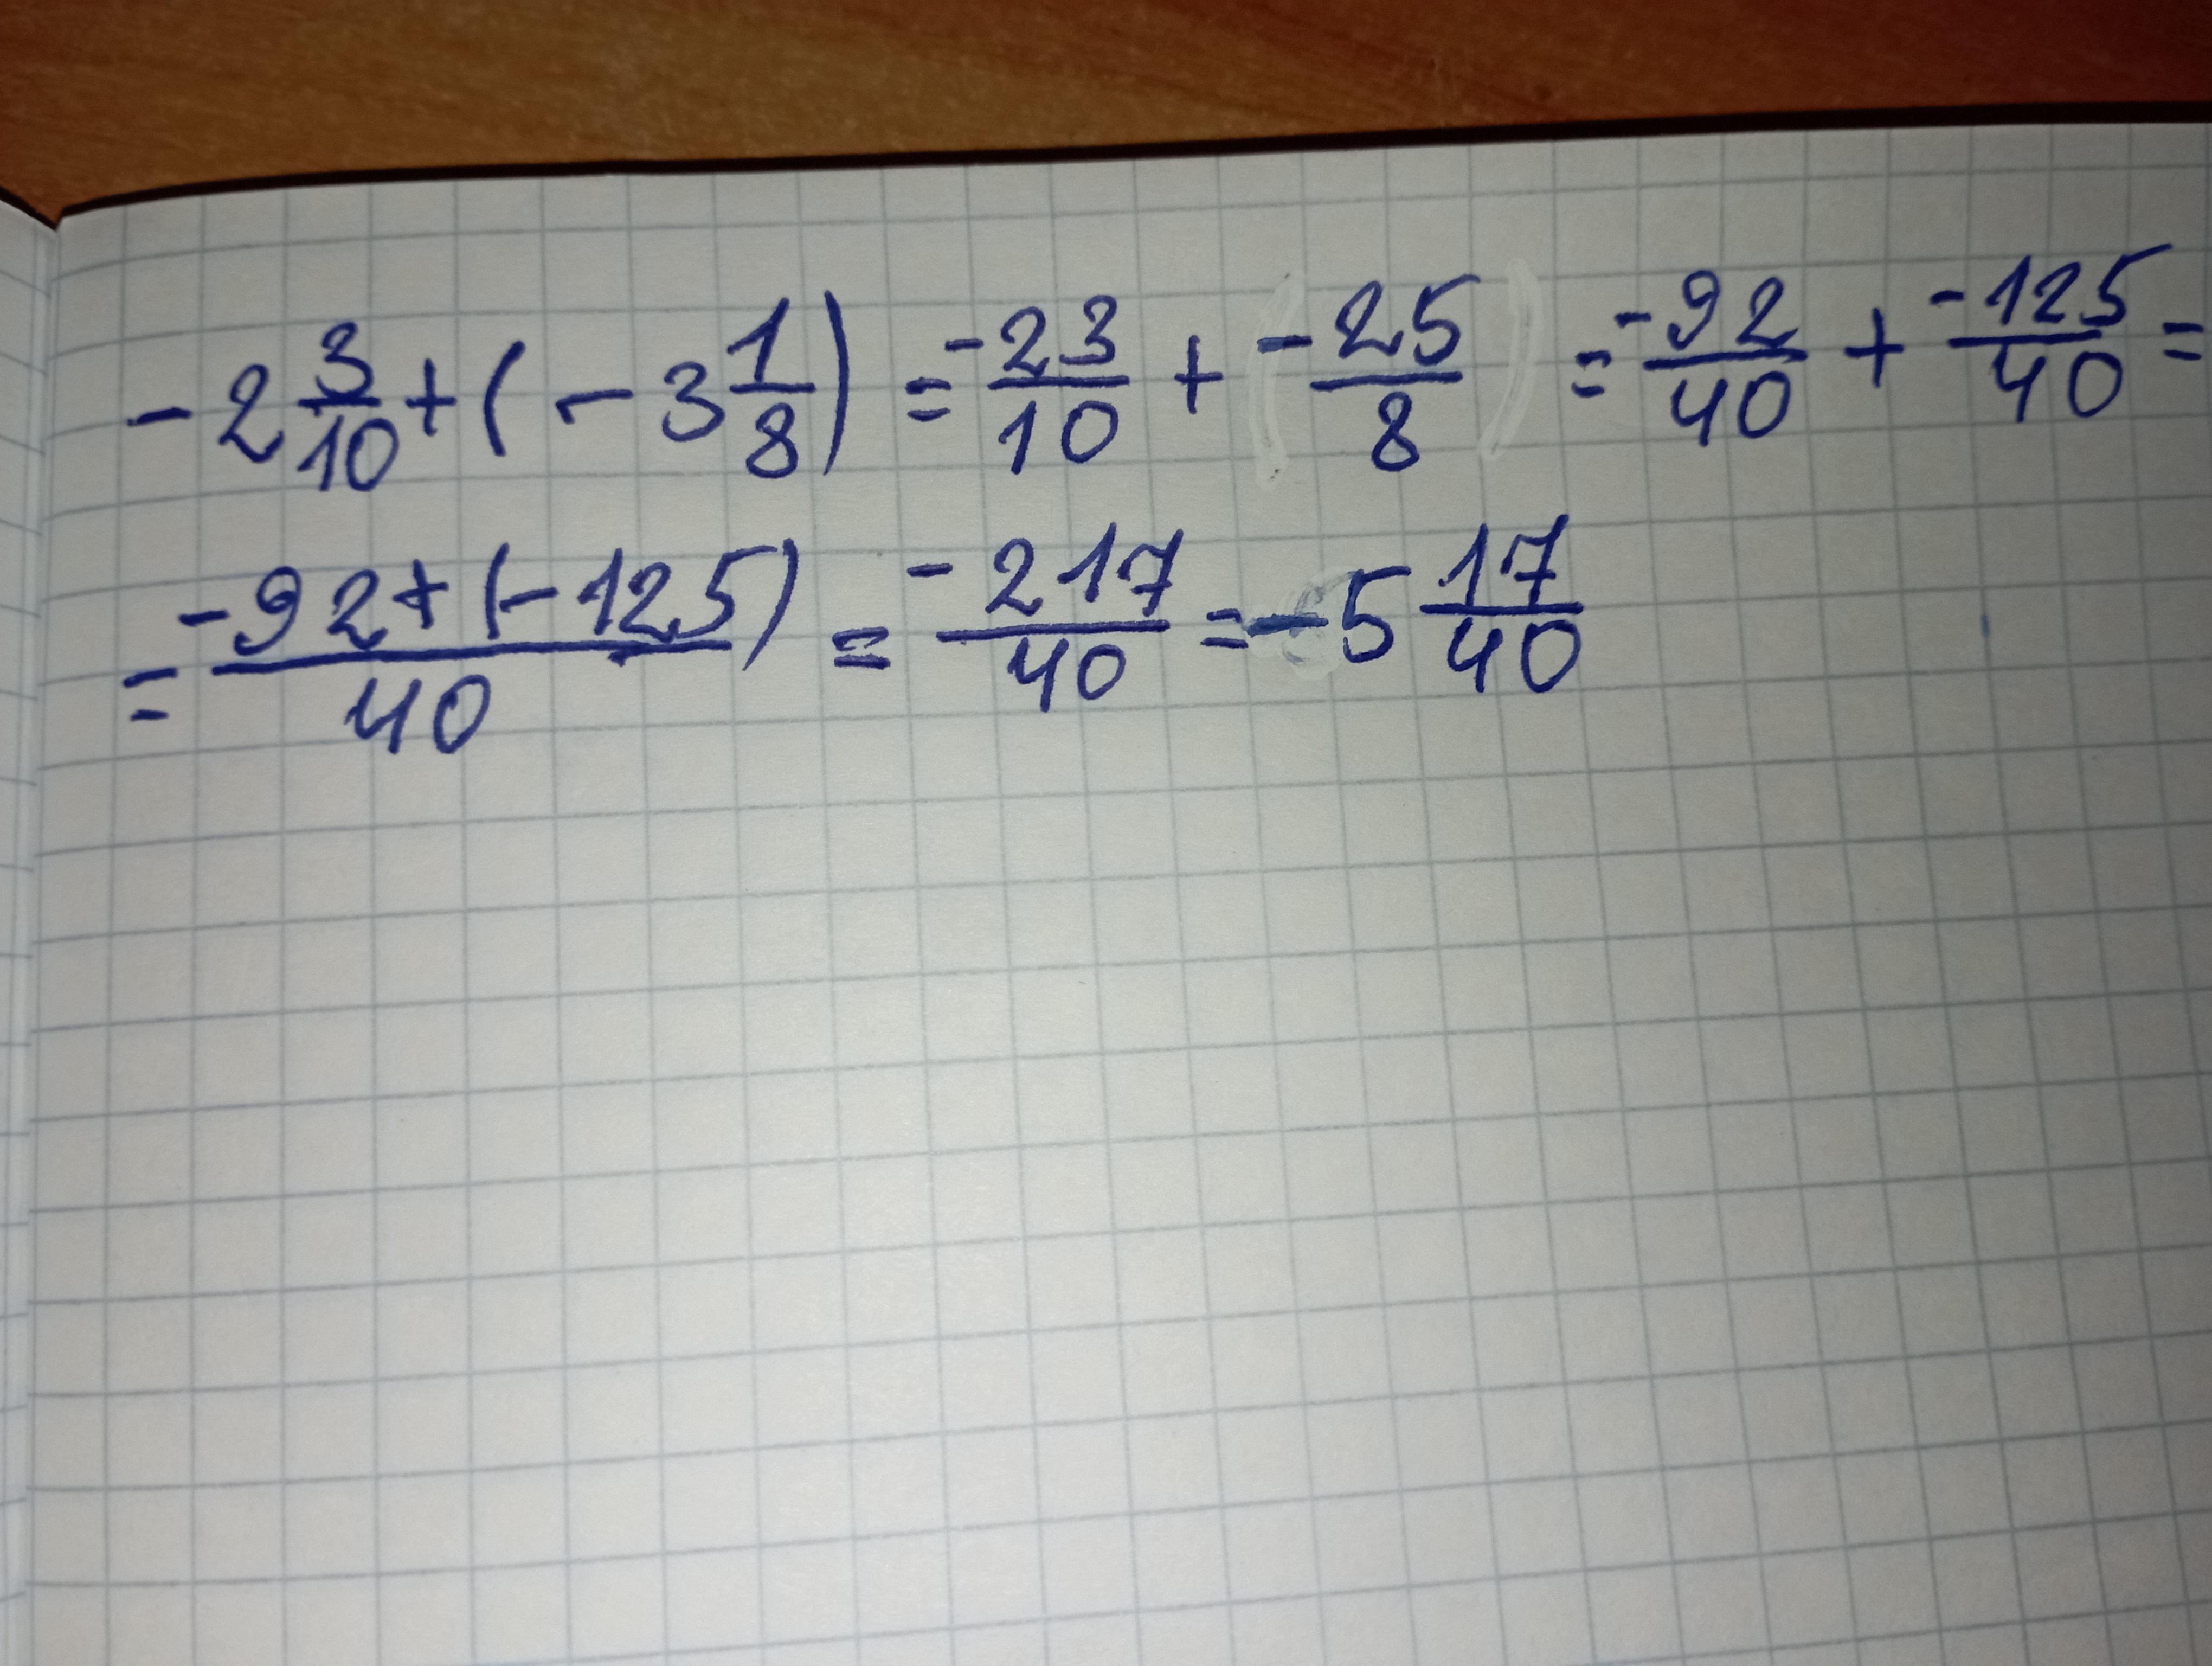 -2 3/10 + (-3 1/8) = -23/10 + -25/8 = -92/40 + -125/40 =
= -92+(-125)/40 = -217/40 = -5 17/40